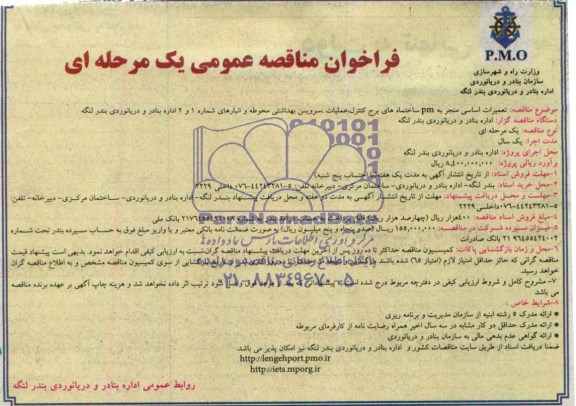 P.M.O
وزارت راه و شهرسازی
سازمان بنادر و دریانوردی
اداره بنادر و دریانوردی بندر لنگه
فراخوان مناقصه عمومی یک مرحله ای
موضوع مناقصه: تعمیرات اساسی منجر به pm ساختمان های برج کنترل،عملیات ،سرویس بهداشتی محوطه و انبارهای شماره ۱ و ۲ اداره بنادر و دریانوردی بندر لنگه
دستگاه مناقصه گزار: اداره بنادر و دریانوردی بندر لنگه
نوع مناقصه: یک مرحله ای
مدت اجرا: یک سال
محل اجرای پروژه: اداره بنادر و دریانوردی بندر لنگه
برآورد ریالی پروژه: ۸,۴۰۰,۰۰۰,۰۰۰ ریال
۱-مهلت فروش اسناد: از تاریخ انتشار آگهی به مدت یک هفته (با احتساب پنج شنبه)
۲-محل خرید اسناد: بندر لنگه- اداره بنادر و دریانوردی- ساختمان مرکزی- دبیرخانه تلفن: ۵-۰۷۶۴۴۲۴۳۲۸۱ داخلی ۲۲۲۹
۳-مهلت و محل دریافت پیشنهاد: مهلت از تاریخ انتشار آگهی به مدت دو هفته و محل دریافت پیشنهاد بندر لنگه- اداره بنادر و دریانوردی- ساختمان مرکزی- دبیرخانه- تلفن: ۵-۰۷۶۴۴۲۴۳۲۸۱ داخلی ۲۲۲۹
۴-مبلغ فروش اسناد مناقصه: ۴۰۰هزار ریال (چهارصد هزار ریال) بانک ملی
۵-میزان سپرده شرکت در مناقصه: ۱۵۵,۰۰۰,۰۰۰ ریال (صد و پنجاه و پنج میلیون ریال) به صورت ضمانت نامه بانکی معتبر و یا واریز مبلغ فوق به حساب سپرده بندر تحت شماره بانک صادرات
۶-محل و زمان بازگشایی پاکات: کمیسیون مناقصه حداکثر تا ده روز پس از آخرین مهلت دریافت پیشنهاد مناقصه گران نسبت به ارزیابی کیفی اقدام خواهد نمود بدیهی است پیشنهاد قیمت
مناقصه گرانی که حائز حداقل امتیاز لازم (امتیاز ۶۵) شده باشند بازگشایی از سوی کمیسیون مناقصه مشخص و به اطلاع مناقصه گران
خواهد رسید.
۷- مشروح کامل و شروح ارزیابی کیفی در دفترچه مربوط درج شده است به پیشنهاد ترتیب اثر داده نخواهد شد و هزینه چاپ آگهی بر عهده برنده مناقصه
می باشد
۸-شرایط خاص :
• ارائه مدرک ۵ رشته ابنیه از سازمان مدیریت و برنامه ریزی
• ارائه مدرک حداقل دو کار مشابه در سه سال اخیر همراه رضایت نامه از کارفرمای مربوطه
• ارائه گواهی عدم بدهی مالی به سازمان بنادر و دریانوردی
ضمنا دریافت اسناد از طریق سایت مناقصات کشور و اداره بنادر و دریانوردی بندر لنگه نیز امکان پذیر می باشد.
http://lengehport.pmo.ir
http://iets.mporg.ir
روابط عمومی اداره بنادر و دریانوردی بندر لنگه
ParsNamadData
۰۲۱-۸۸۳۴۹۶۷۰-۵